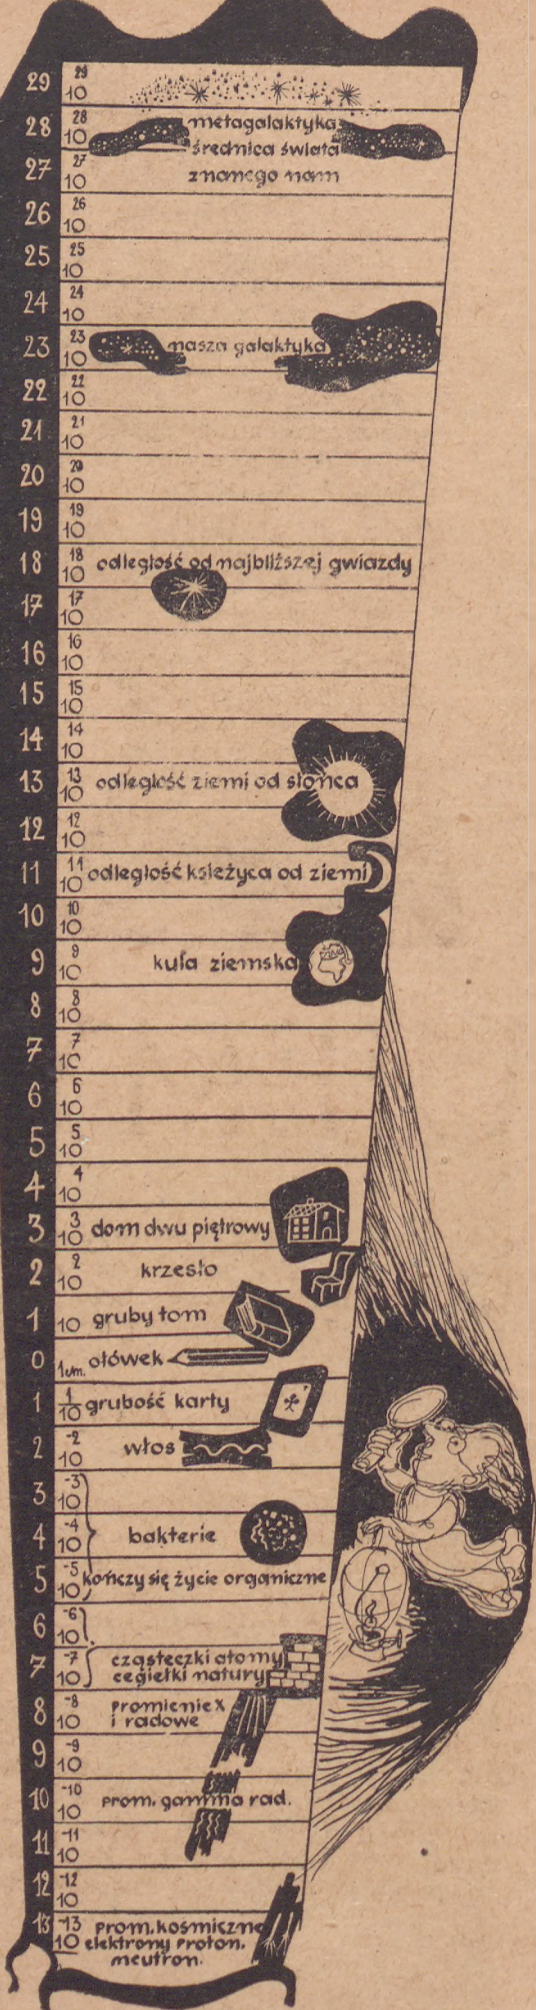 29 10 29
28 10 28 metagalaktyka
średnica świata
27 10 27 znanego nam
26 10 26
25 10 25
24 10 24
23 10 23 nasza galaktyka
22 10 22
21 10 21
20 10 20
19 10 19
18 10 18 odległość od najbliższej gwiazdy
17 10 17
16 10 16
15 10 15
14 10 14
13 10 13 odległość ziemi od słońca
12 10 12
11 10 11 odległość księżyca od ziemi
10 10 10
9 10 9 kula ziemska
8 10 8
7 10 7
6 10 6
5 10 5
4 10 4
3 10 3 dom dwu piętrowy
2 10 2 krzesło
1 10 gruby tom
0 1cm. ołówek
1 1/10 grubość karty
2 10 -2 włos
3 10 -3
4 10 -4 bakterie
5 10 -5 kończy się życie organiczne
6 10 -6
7 10 -7 cząsteczki atomy
cegiełki natury
8 10 -8 promienie X
i radowe
9 10 -9
10 10 -10 prom. gamma rad.
11 10 -11
12 10 -12
13 10 -13 prom. kosmiczne
elektrony proton.
neutron.